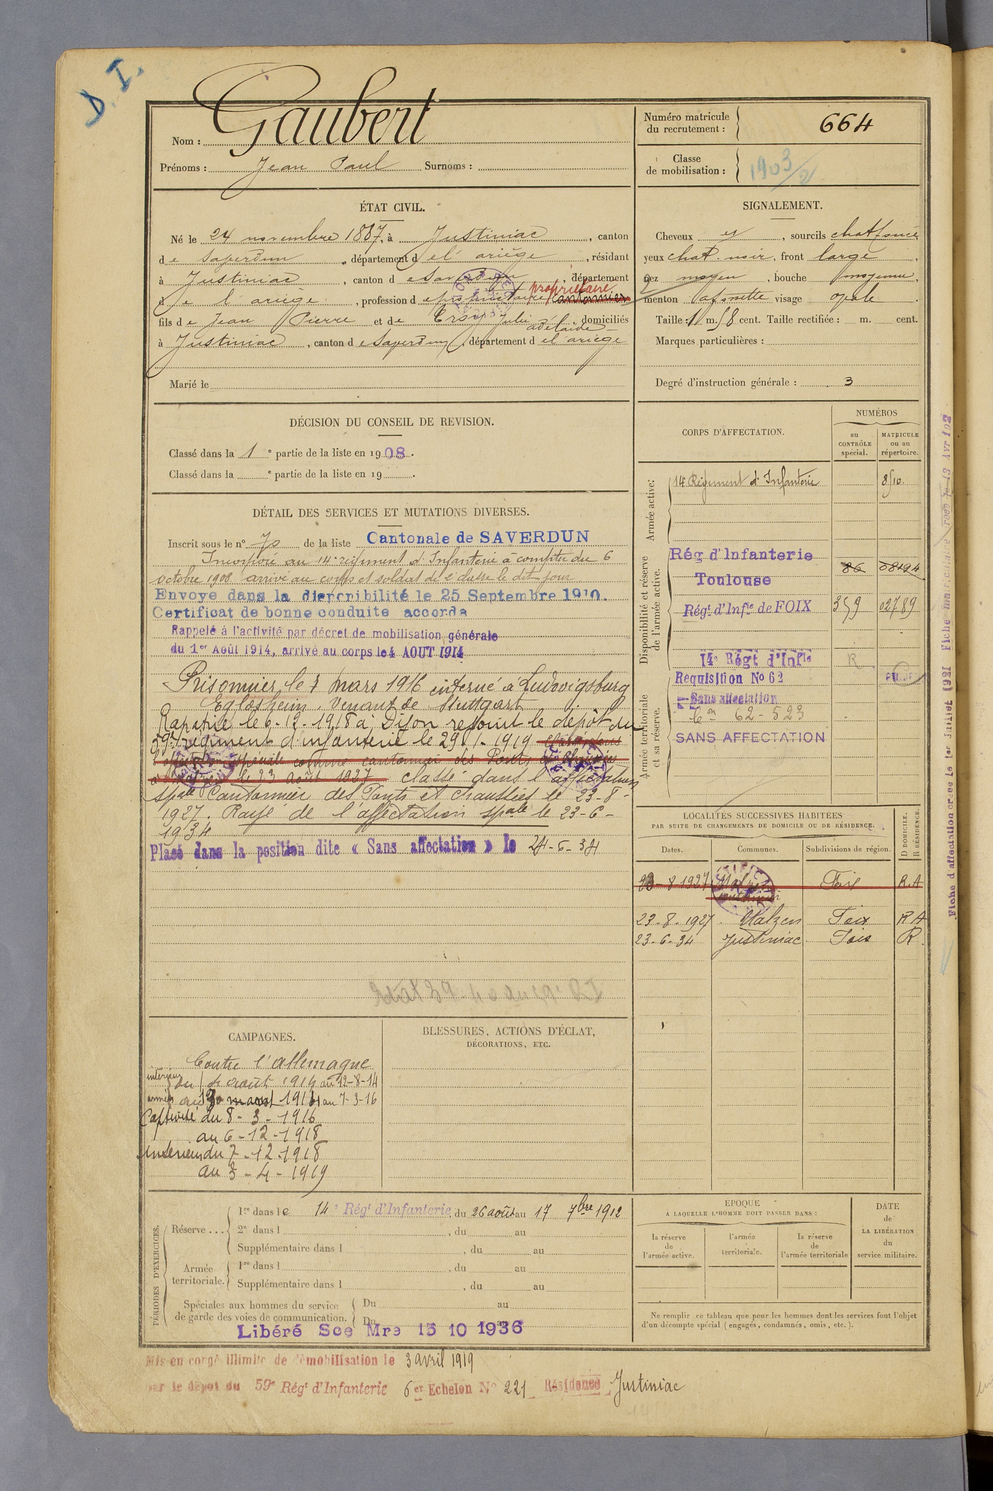 D. I.
Nom : Gaubert
Prénoms : Jean Paul Surnoms :
Numéro matricule du recrutement : 664
Classe de mobilisation : 1903/2
ÉTAT CIVIL.
Né le 24 novembre 1887, à Justiniac, canton
de Saverdun, département de l'ariège, résidant
à Justiniac, canton de Saverdun, département
de l'ariège, profession de propriétaire cantonnier propriétaire
fils de Jean Pierre et de Julie adélaïde, domiciliés
à Justiniac, canton de Saverdun, département de l'ariège
Marié le
SIGNALEMENT.
Cheveux et, sourcils chat foncé
yeux chat. noir, front large,
nez moyen, bouche moyenne,
menton à fossette visage ovale
Taille : 1 m. 58 cent. Taille rectifiée : m. cent.
Marques particulières :
Degré d'instruction générale : 3
DÉCISION DU CONSEIL DE REVISION.
Classé dans la 1e partie de la liste en 1908.
Classé dans la e partie de la liste en 19 .
DÉTAIL DES SERVICES ET MUTATIONS DIVERSES.
Inscrit sous le n° 70 de la liste Cantonale de SAVERDUN
Incorporé au 14e régiment d'Infanterie à compter du 6
octobre 1908. arrivé au corps et soldat de 2e classe le dit jour
Envoyé dans la disponibilité le 25 Septembre 1910.
Certificat de bonne conduite accordé
Rappelé à l'activité par décret de mobilisation générale
du 1er Août 1914, arrivé au corps le 4 AOUT 1914
Prisonnier, le 7 mars 1916 interné à Ludwigsburg
Eglosheim, venant de Stuttgart
Rapatrié le 6-12-1918 à Dijon rejoint le dépôt du
59e régiment d'infanterie le 29-1-1919
le 23 août 1927 classé dans l'affectation
spale Cantonnier des Ponts et Chaussées le 23-8-
1927. Rayé de l'affectation spale le 23-6-
1934
Placé dans la position dite « Sans affectation » le 24-6-34
CORPS D'AFFECTATION.
NUMÉROS
au CONTRÔLE spécial.
MATRICULE ou au répertoire.
Armée active.
14 Régiment d'Infanterie 8510
Disponibilité et réserve de l'armée active.
Rég d'Infanterie
Toulouse 86 08194
Régt. d'Infie de FOIX 359 02789
14e Régt d'Infie R
Armée territoriale et sa réserve.
Requisition No 62
Sans affectation
62-523
SANS AFFECTATION
LOCALITÉS SUCCESSIVES HABITÉES
PAR SUITE DE CHANGEMENTS DE DOMICILE OU DE RÉSIDENCE.
Dates. Communes. Subdivisions de région. D DOMICILE. R RÉSIDENCE.
23-8-1927 Foix R.A
23-8-1927 Malzen Foix R A
23-6-34 Justiniac Foix R.
Fiche d'affectation créée le 1er Juillet 1921
CAMPAGNES.
Contre l'allemagne
intérieur du 4 août 1914 au 12-8-14
armées du 13 août 1914 au 7-3-16
Captivité du 8-3-1916
au 6-12-1918
Intérieur du 7-12-1918
au 3-4-1919
BLESSURES, ACTIONS D'ÉCLAT,
DÉCORATIONS, ETC.
PÉRIODES D'EXERCICES.
Réserve....
1re dans le 14e Régt d'Infanterie du 26 août au 17 7bre 1912
2e dans l , du au
Supplémentaire dans l , du au
Armée territoriale.
1re dans l , du au
Supplémentaire dans l , du au
Spéciales aux hommes du service de garde des voies de communication.
Du au
Du
Libéré Sce Mre 15 10 1936
ÉPOQUE
A LAQUELLE L'HOMME DOIT PASSER DANS :
la réserve de l'armée active.
l'armée territoriale.
la réserve de l'armée territoriale
DATE de LA LIBÉRATION du service militaire.
Ne remplir ce tableau que pour les hommes dont les services font l'objet
d'un décompte spécial (engagés, condamnés, omis, etc.).
Mis en congé illimité de démobilisation le 3 avril 1919
par le dépôt du 59e Régt d'Infanterie 6e Echelon No 221 Résidence Justiniac